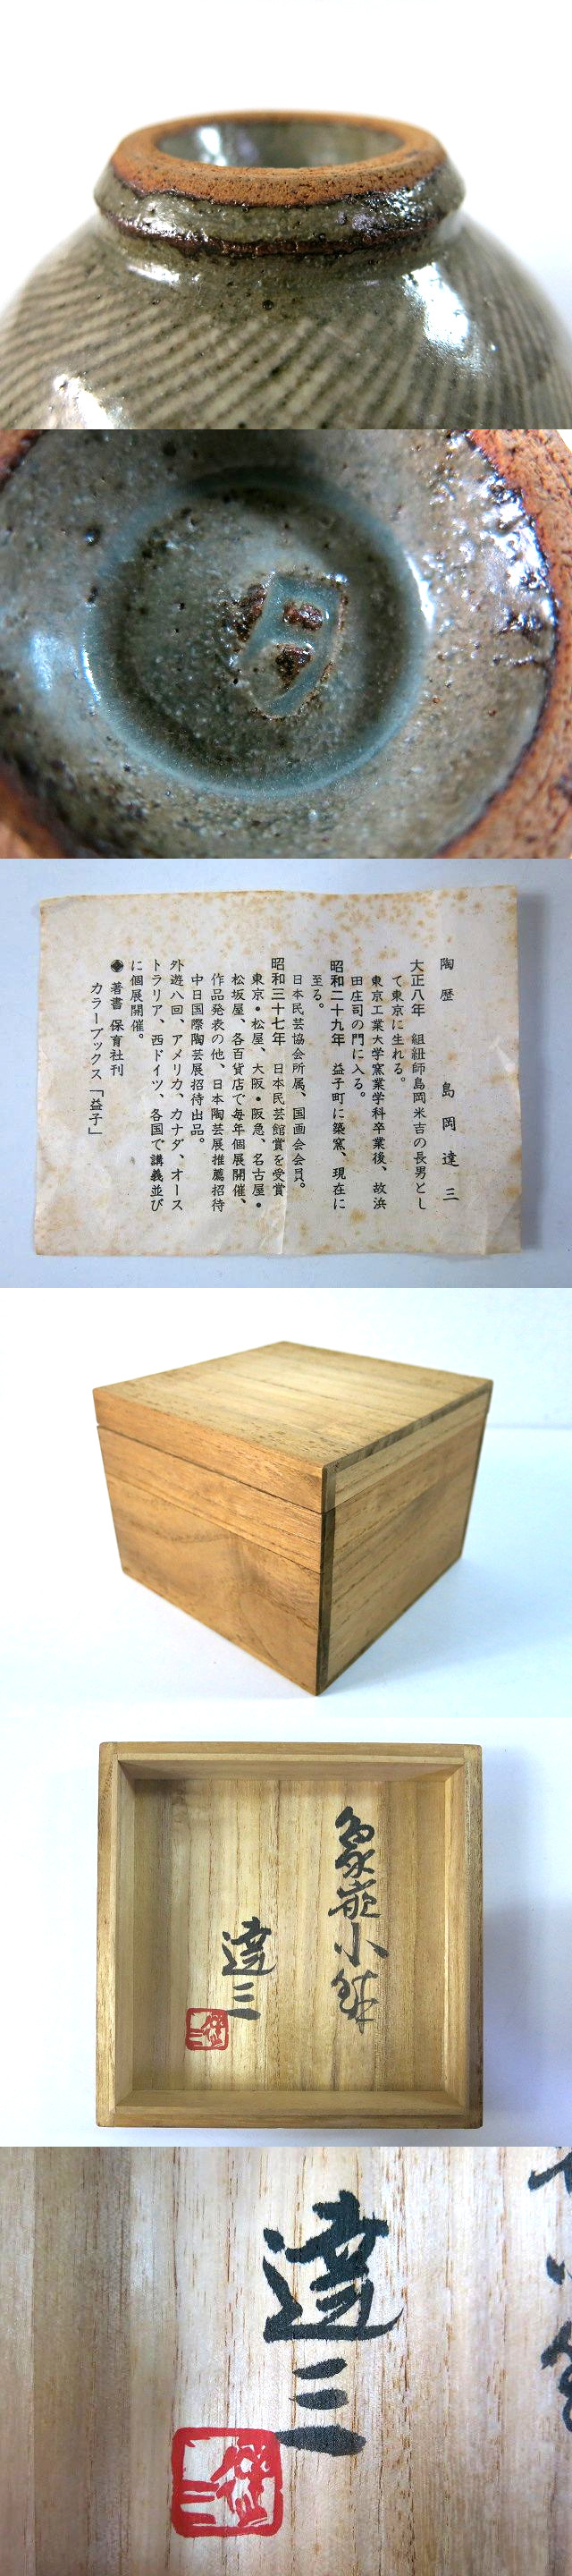 タ
陶歴 島岡達三
大正八年 組紐師島岡米吉の長男とし
て東京に生れる。
東京工業大学窯業学科卒業後、故浜
田庄司の門に入る。
昭和二十九年 益子町に築窯、現在に
至る。
日本民芸協会所属、国画会会員。
昭和三十七年 日本民芸館賞を受賞
東京・松屋、大阪・阪急、名古屋・
松坂屋、各百貨店で毎年個展開催、
作品発表の他、日本陶芸展推薦招待
中日国際陶芸展招待出品。
外遊八回、アメリカ、カナダ、オース
トラリア、西ドイツ、各国で講義並び
に個展開催。
著書 保育社刊
カラーブックス「益子」
象嵌小鉢
達三
達三